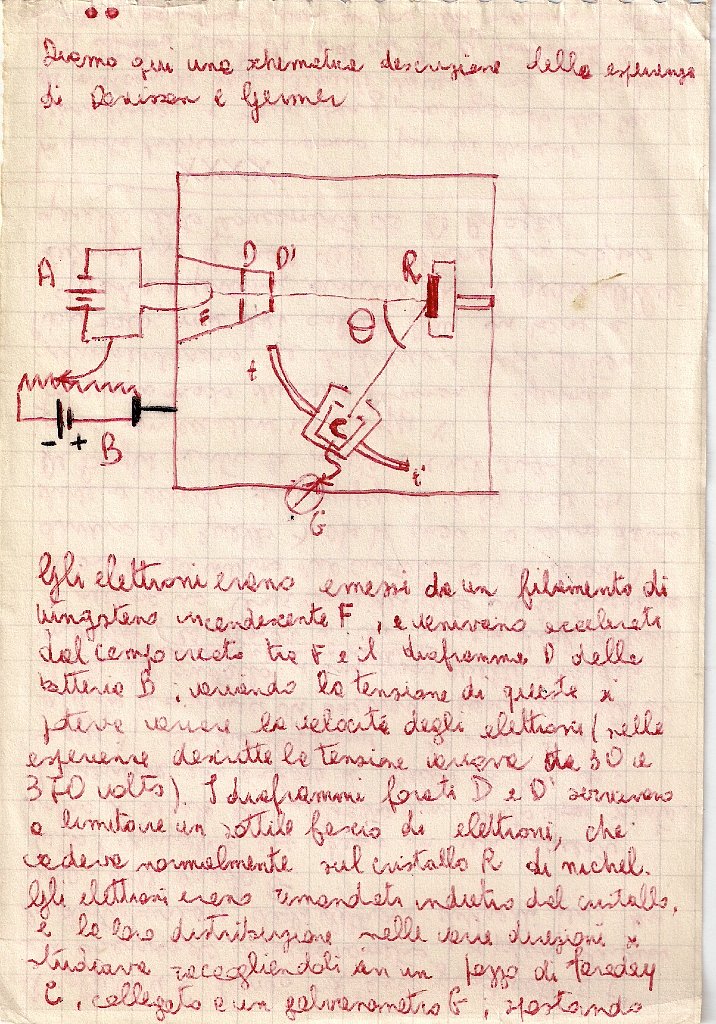 Diamo qui una schematica descrizione della esperienza
di Davisson e Germer
A
D D'
R
F
θ
t
C
- + B
t'
G
Gli elettroni erano emessi da un filamento di
tungsteno incandescente F, e venivano accelerati
dal campo creato tra F e il diaframma D dalla
batteria B; variando la tensione di questa si
poteva variare la velocità degli elettroni (nelle
esperienze descritte la tensione variava da 30 a
370 volts). I diaframmi forati D e D' servivano
a limitare un sottile fascio di elettroni, che
cadeva normalmente sul cristallo R di nichel.
Gli elettroni erano rimandati indietro dal cristallo,
e la loro distribuzione nelle varie direzioni si
studiava raccogliendoli in un pozzo di Faraday
C, collegato a un galvanometro G; spostando